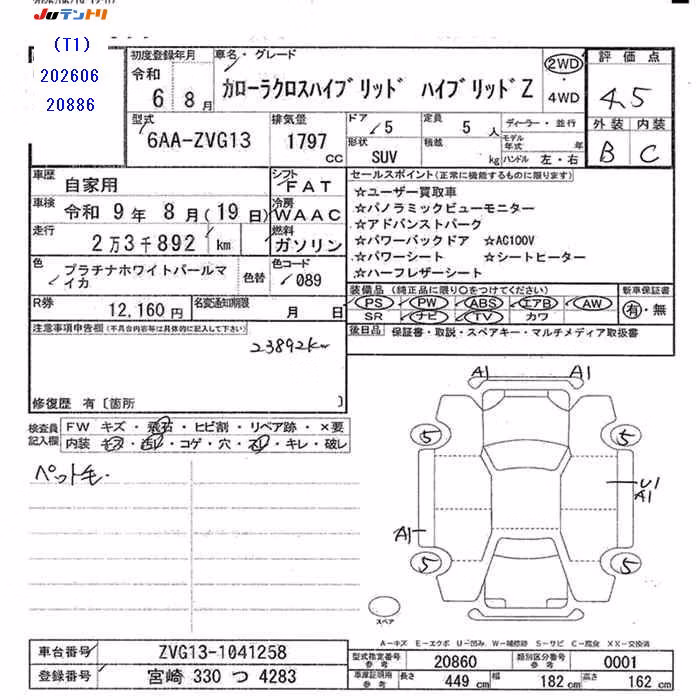 JUテントリ
(T1)
202606
20886
初度登録年月 車名・グレード 評価点
令和 6 8月 カローラクロスハイブリッド ハイブリッドZ 2WD ・4WD 4.5
型式 排気量 ドア 定員 ディーラー・並行 外装 内装
6AA-ZVG13 1797 cc 5 5人 モデル年式 年 B C
形状 積載 ハンドル 左・右
SUV kg
車歴 自家用 シフト FAT セールスポイント(正常に機能するものに限ります)
車検 令和 9年 8月(19日) 冷房 WAAC
走行 2万3千892 km 燃料 ガソリン
☆ユーザー買取車
☆パノラミックビューモニター
☆アドバンストパーク
☆パワーバックドア ☆AC100V
☆パワーシート ☆シートヒーター
☆ハーフレザーシート
色 プラチナホワイトパールマイカ 色替 色コード 089
装備品 (純正品に限り○をつけてください) 新車保証書
R券 12,160円 名変通知期限 月 日
PS PW ABS エアB AW 有・無
SR ナビ TV カワ
注意事項申告欄(不具合内容等は具体的に記入して下さい)
後日品 保証書・取説・スペアキー・マルチメディア取扱書
23892km
修復歴 有〔箇所 〕
検査員記入欄 FW キズ・飛石・ヒビ割・リペア跡・×要
内装 キズ・汚レ・コゲ・穴・スレ・キレ・破レ
ペット毛.
A1 A1
5 5
U1
A1
A1
5 5
スペア
A-キズ E-エクボ U-凹み W-補修跡 S-サビ C-腐食 XX-交換済
車台番号 ZVG13-1041258
登録番号 宮崎 330 つ 4283
型式指定番号 参考 20860 類別区分番号 参考 0001
車庫証明用 参考 長さ 449 cm 幅 182 cm 高さ 162 cm